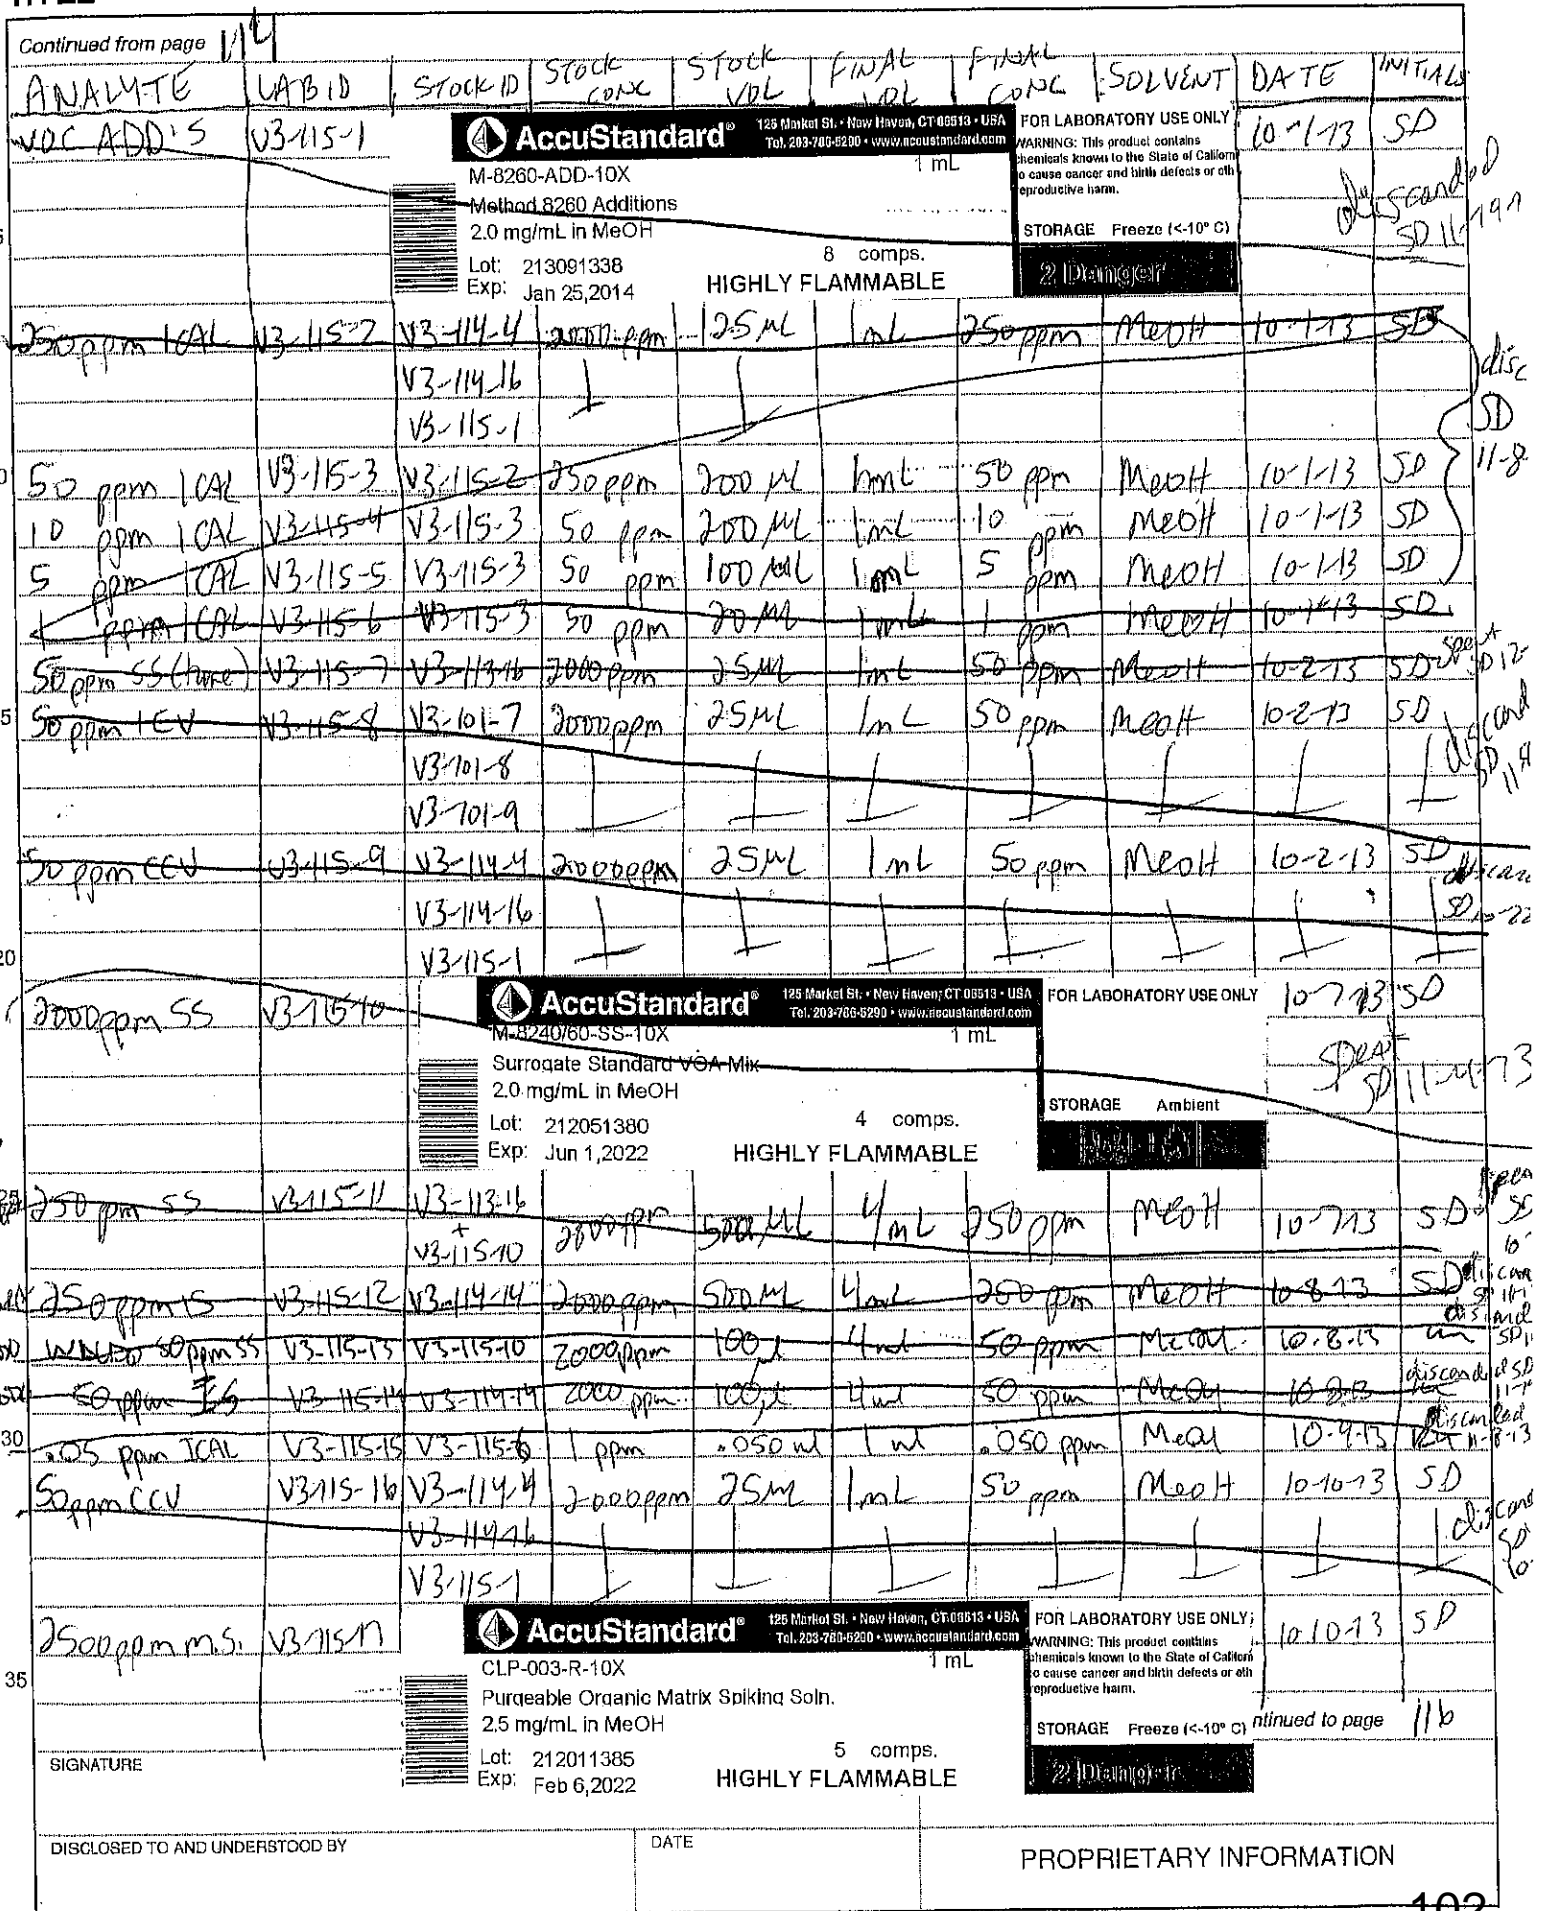 TITLE
Continued from page 114
ANALYTE LAB ID STOCK ID STOCK CONC STOCK VOL FINAL VOL FINAL CONC SOLVENT DATE INITIALS
VOC ADD'S V3-115-1 10-1-13 SD
AccuStandard® 125 Market St. • New Haven, CT 06513 • USA
Tel. 203-786-5290 • www.accustandard.com
1 mL
M-8260-ADD-10X
Method 8260 Additions
2.0 mg/mL in MeOH
8 comps.
Lot: 213091338
Exp: Jan 25,2014
HIGHLY FLAMMABLE
FOR LABORATORY USE ONLY
WARNING: This product contains
chemicals known to the State of Californ
o cause cancer and birth defects or oth
eproductive harm.
STORAGE Freeze (<-10° C)
2 Danger
discarded
SD
250 ppm ICAL V3-115-2 V3-114-4 2000 ppm 125 µL 1mL 250 ppm MeOH 10-1-13 SD
V3-114-16
V3-115-1
disc
SD
11-8
50 ppm ICAL V3-115-3 V3-115-2 250 ppm 200 µL 1mL 50 ppm MeOH 10-1-13 SD
10 ppm ICAL V3-115-4 V3-115-3 50 ppm 200 µL 1mL 10 ppm MeOH 10-1-13 SD
5 ppm ICAL V3-115-5 V3-115-3 50 ppm 100 µL 1mL 5 ppm MeOH 10-1-13 SD
1 ppm ICAL V3-115-6 V3-115-3 50 ppm 20 µL 1mL 1 ppm MeOH 10-1-13 SD
50 ppm SS V3-115-7 V3-113-16 2000 ppm 25 µL 1mL 50 ppm MeOH 10-2-13 SD spent SD 12-
50 ppm ICV V3-115-8 V3-101-7 2000 ppm 25 µL 1mL 50 ppm MeOH 10-2-13 SD discard
V3-101-8
V3-101-9
50 ppm CCV V3-115-9 V3-114-4 2000 ppm 25 µL 1mL 50 ppm MeOH 10-2-13 SD discard
V3-114-16 SD 10-22
20
V3-115-1
2000 ppm SS V3-115-10 10-7-13 SD
AccuStandard® 125 Market St. • New Haven, CT 06513 • USA
Tel. 203-786-5290 • www.accustandard.com
M-8240/60-SS-10X 1 mL
Surrogate Standard VOA Mix
2.0 mg/mL in MeOH
Lot: 212051380 4 comps.
Exp: Jun 1,2022 HIGHLY FLAMMABLE
FOR LABORATORY USE ONLY
STORAGE Ambient
spent
SD 11-4-13
25
250 ppm SS V3-115-11 V3-113-16 + V3-115-10 2000 ppm 500 µL 4mL 250 ppm MeOH 10-7-13 SD
250 ppm IS V3-115-12 V3-114-14 2000 ppm 500 µL 4mL 250 ppm MeOH 10-8-13 SD
50 ppm SS V3-115-13 V3-115-10 2000 ppm 100 µl 4ml 50 ppm MeOH 10-8-13
50 ppm IS V3-115-14 V3-114-14 2000 ppm 100 µl 4ml 50 ppm MeOH 10-8-13 discarded SD
30
.05 ppm ICAL V3-115-15 V3-115-6 1 ppm .050 ml 1 ml .050 ppm MeOH 10-9-13 discarded 11-8-13
50 ppm CCV V3-115-16 V3-114-4 2000 ppm 25 µL 1mL 50 ppm MeOH 10-10-13 SD
V3-114-16
V3-115-1
2500 ppm m.s. V3-115-17 10-10-13 SD
AccuStandard® 125 Market St. • New Haven, CT 06513 • USA
Tel. 203-786-5290 • www.accustandard.com
1 mL
35
CLP-003-R-10X
Purgeable Organic Matrix Spiking Soln.
2.5 mg/mL in MeOH
Lot: 212011385 5 comps.
Exp: Feb 6,2022 HIGHLY FLAMMABLE
FOR LABORATORY USE ONLY
WARNING: This product contains
chemicals known to the State of Californ
o cause cancer and birth defects or oth
eproductive harm.
STORAGE Freeze (<-10° C)
2 Danger
ntinued to page 116
SIGNATURE
DISCLOSED TO AND UNDERSTOOD BY
DATE
PROPRIETARY INFORMATION
102